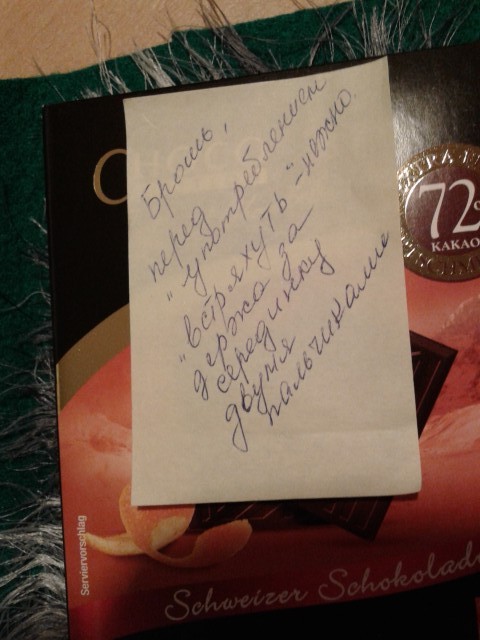 Брошь,
перед
употреблением
"встряхуть" - нежно
держа за
серединку
двумя
пальчиками
72%
КАКАО
Serviervorschlag
Schweizer Schokolade